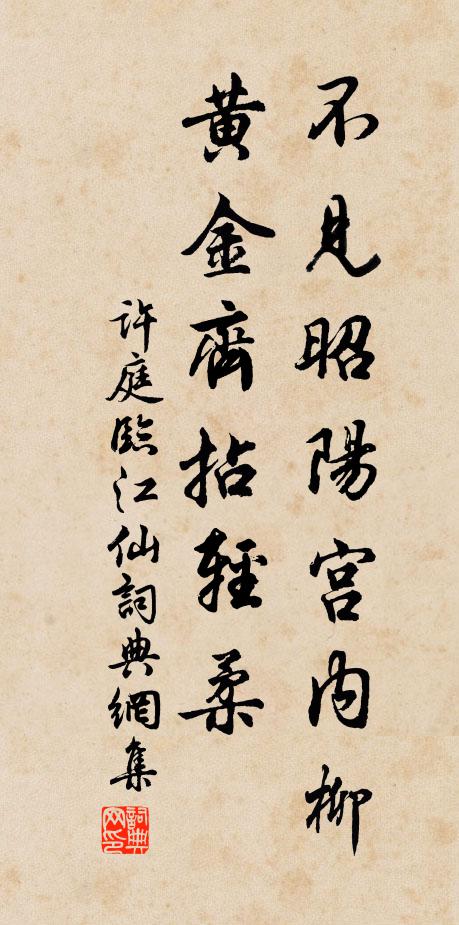 不見昭陽宮內柳
黃金齊拈輕柔
許庭臨江仙詞典網集
詞典网印